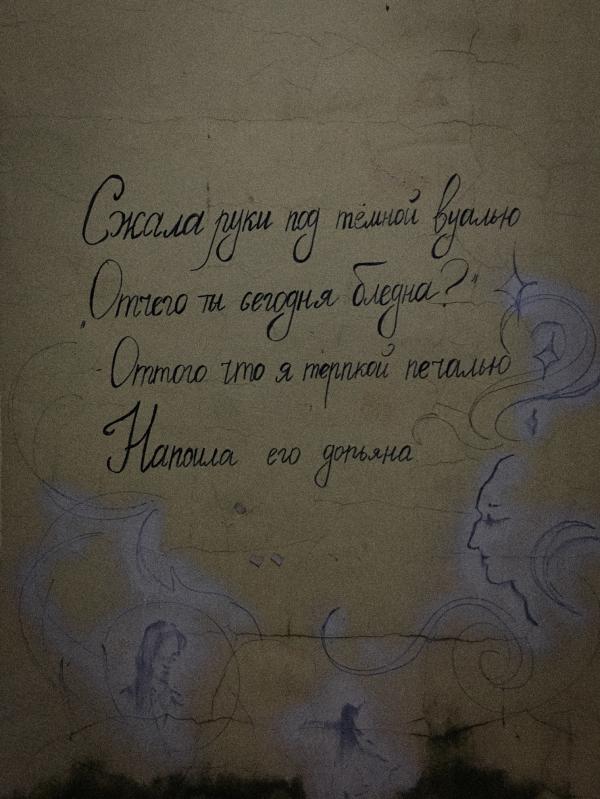 Сжала руки под тёмной вуалью
„Отчего ты сегодня бледна?"
- Оттого что я терпкой печалью
Напоила его допьяна